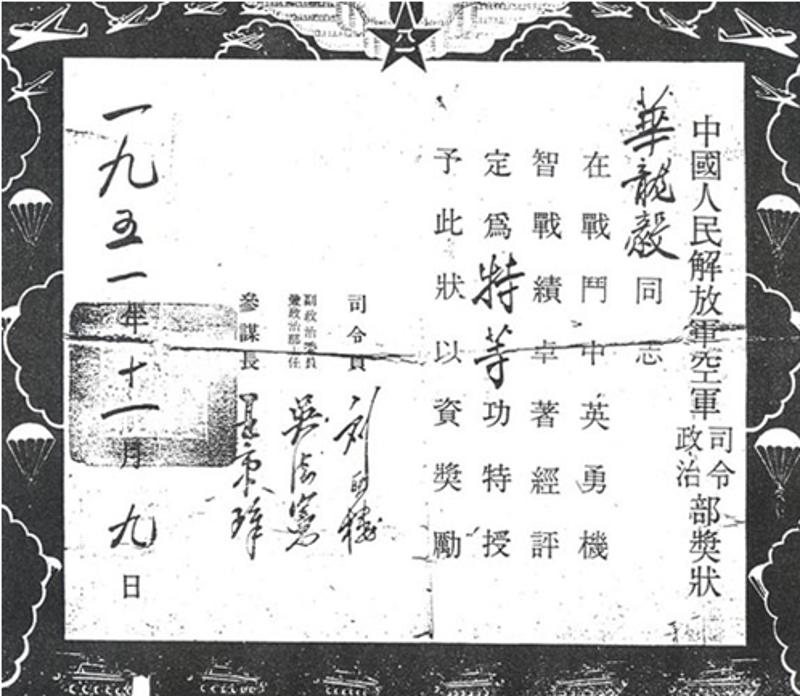 中國人民解放軍空軍司令政治部獎狀
華龍毅同志
在戰鬥中英勇機
智戰績卓著經評
定爲特等功特授
予此狀以資獎勵
司令員 刘亞楼
副政治委員兼政治部主任 吳法憲
參謀長 王秉璋
一九五一年十一月九日
八一